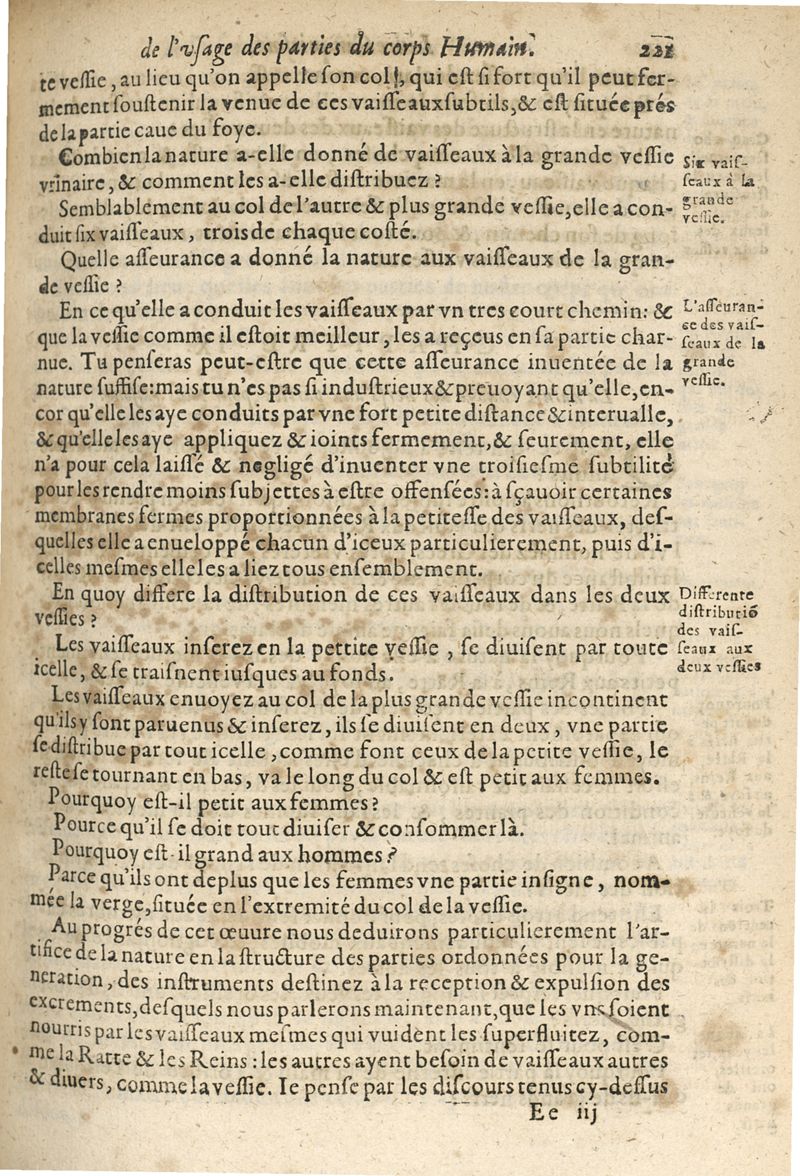 de l'vſage des parties du corps Humain. 221
te veſſie, au lieu qu'on appelle ſon col, qui eſt ſi fort qu'il peut fer-
mement ſouſtenir la venue de ces vaiſſeaux ſubtils, & eſt ſituée prés
de la partie caue du foye.
Combien la nature a-elle donné de vaiſſeaux à la grande veſſie
vrinaire, & comment les a-elle diſtribuez ?
Six vaiſ-
ſeaux à la
grande
veſſie.
Semblablement au col de l'autre & plus grande veſſie, elle a con-
duit ſix vaiſſeaux, trois de chaque coſté.
Quelle aſſeurance a donné la nature aux vaiſſeaux de la gran-
de veſſie ?
En ce qu'elle a conduit les vaiſſeaux par vn tres court chemin: &
que la veſſie comme il eſtoit meilleur, les a reçeus en ſa partie char-
nue. Tu penſeras peut-eſtre que cette aſſeurance inuentée de la
nature ſuffiſe: mais tu n'es pas ſi induſtrieux & preuoyant qu'elle, en-
L'aſſeuran-
ce des vaiſ-
ſeaux de la
grande
veſſie.
cor qu'elle les aye conduits par vne fort petite diſtance & interualle,
& qu'elle les aye appliquez & ioints fermement, & ſeurement, elle
n'a pour cela laiſſé & negligé d'inuenter vne troiſieſme ſubtilité
pour les rendre moins ſubjettes à eſtre offenſées: à ſçauoir certaines
membranes fermes proportionnées à la petiteſſe des vaiſſeaux, deſ-
quelles elle a enueloppé chacun d'iceux particulierement, puis d'i-
celles meſmes elle les a liez tous enſemblement.
En quoy differe la diſtribution de ces vaiſſeaux dans les deux
veſſies ?
Differente
diſtributiõ
des vaiſ-
ſeaux aux
deux veſſies
Les vaiſſeaux inſerez en la pettite veſſie, ſe diuiſent par toute
icelle, & ſe traiſnent iuſques au fonds.
Les vaiſſeaux enuoyez au col de la plus grande veſſie incontinent
qu'ils y ſont paruenus & inſerez, ils ſe diuiſent en deux, vne partie
ſe diſtribue par tout icelle, comme font ceux de la petite veſſie, le
reſte ſe tournant en bas, va le long du col & eſt petit aux femmes.
Pourquoy eſt-il petit aux femmes ?
Pource qu'il ſe doit tout diuiſer & conſommer là.
Pourquoy eſt-il grand aux hommes ?
Parce qu'ils ont deplus que les femmes vne partie inſigne, nom-
mée la verge, ſituée en l'extremité du col de la veſſie.
Au progrés de cet œuure nous deduirons particulierement l'ar-
tifice de la nature en la ſtructure des parties ordonnées pour la ge-
neration, des inſtruments deſtinez à la reception & expulſion des
excrements, deſquels nous parlerons maintenant, que les vns ſoient
nourris par les vaiſſeaux meſmes qui vuident les ſuperfluitez, com-
me la Ratte & les Reins : les autres ayent beſoin de vaiſſeaux autres
& diuers, comme la veſſie. Ie penſe par les diſcours tenus cy-deſſus
Ee iij